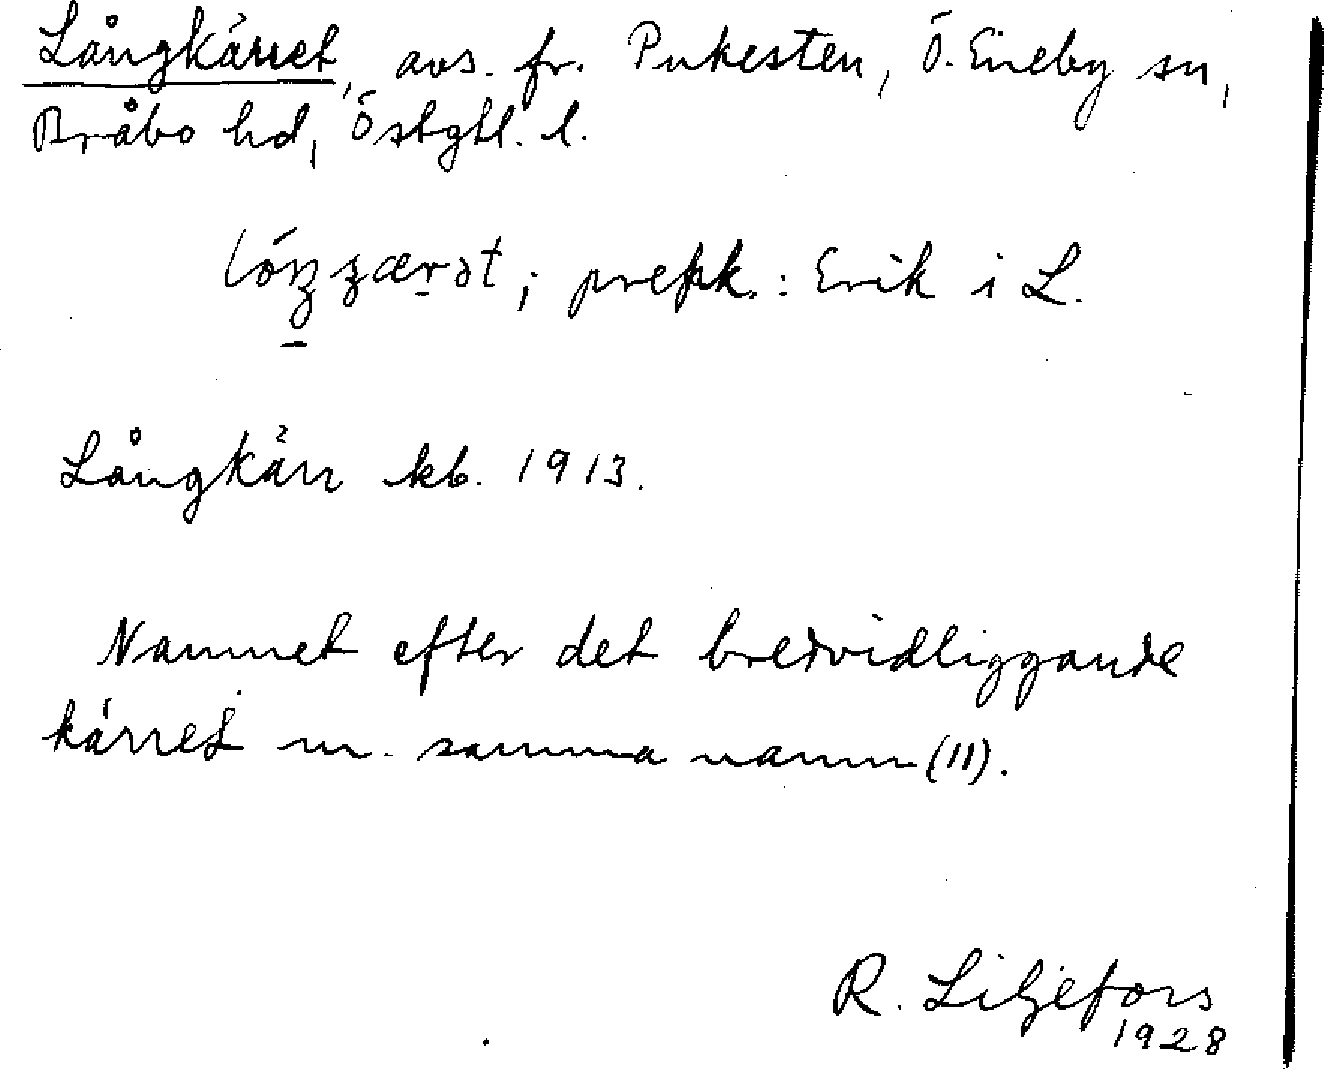 Långkärret, avs. fr. Pukesten, Ö. Eneby sn,
Bråbo hd, Östgtl. l.
; prepk.: Erik i L.
Långkärr kb. 1913.
Namnet efter det bredvidliggande
kärret m. samma namn (11).
R. Liljefors
1928